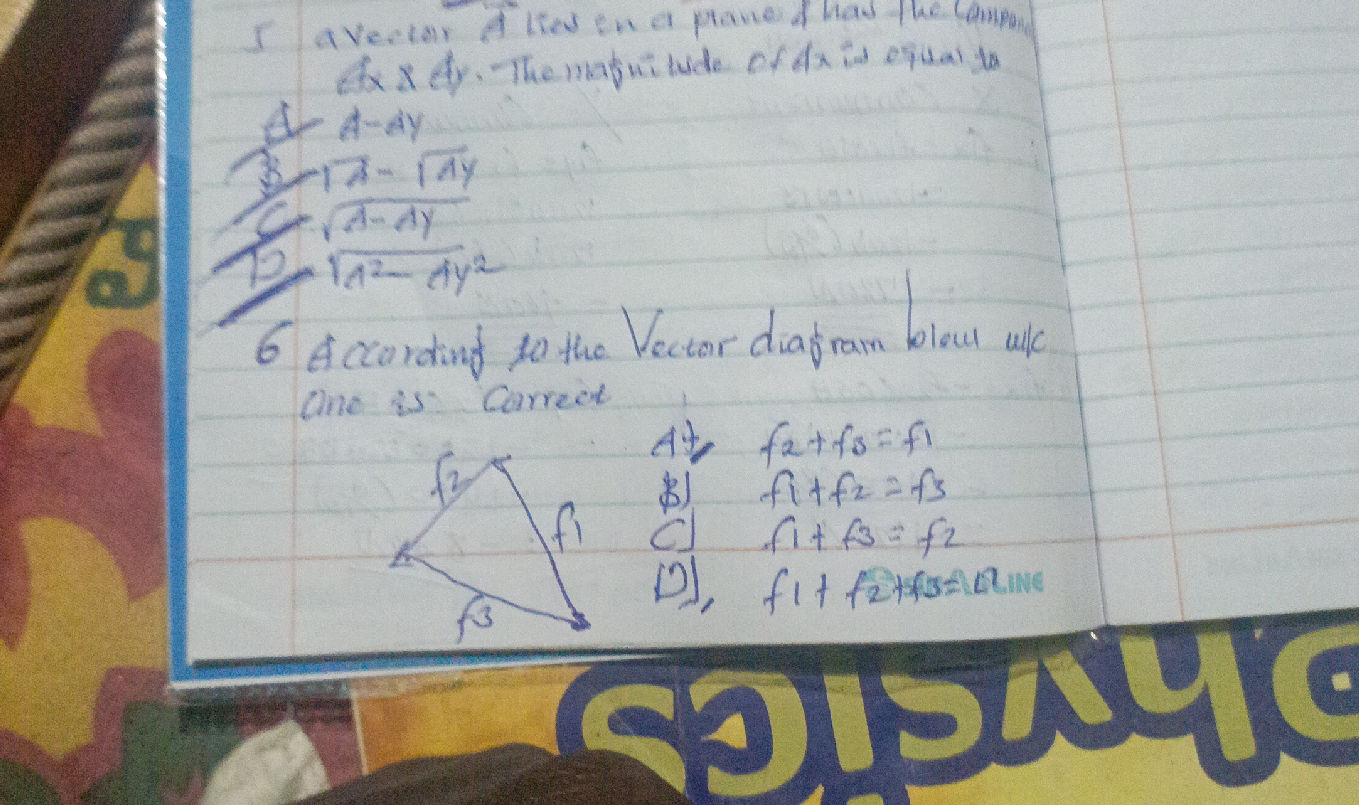 5 a vector A lies in a plane & has the Compon
Ax & Ay. The magnitude of Ax is equal to
A A-Ay
B √A - √Ay
C √A-Ay
D √A²-Ay²
6 According to the Vector diagram blow w/c
one is correct
A f2+f3=f1
f2
B] f1+f2=f3
f1
C] f1+f3=f2
D], f1+f2+f3=0
LINE
f3
Physics